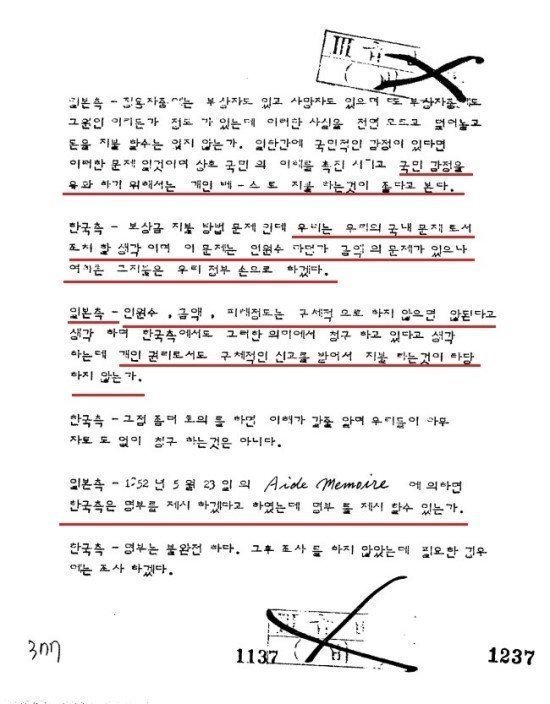 III
일본측 - 징용자중에는 부상자도 있고 사망자도 있으며 또 부상자중에도
그원인 이라든가 정도 가 있는데 이러한 사실을 전연 모르고 덮어놓고
돈을 지불 할수는 없지 않는가. 일한간에 국민적인 감정이 있다면
이러한 문제 일것이며 상호 국민 의 이해를 촉진 시키고 국민 감정을
유화 하기 위해서는 개인 베-스 로 지불 하는것이 좋다고 본다.
한국측 - 보상금 지불 방법 문제 인데 우리는 우리의 국내 문제 로서
조처 할 생각 이며 이 문제는 인원수 라던가 금액 의 문제가 있으나
여하튼 그지불은 우리 정부 손으로 하겠다.
일본측 - 인원수 , 금액 , 피해정도는 구체적 으로 하지 않으면 않된다고
생각 하며 한국측에서도 그러한 의미에서 청구 하고 있다고 생각
하는데 개인 권리로서도 구체적인 신고를 받어서 지불 하는것이 타당
하지 않는가.
한국측 - 그점 좀더 토의 를 하면 이해가 갈줄 알며 우리들이 아무
자료 도 없이 청구 하는것은 아니다.
일본측 - 1952 년 5 월 23 일 의 Aide Memoire 에 의하면
한국측은 명부를 제시 하겠다고 하였는데 명부 를 제시 할수 있는가.
한국측 - 명부는 불완전 하다. 그후 조사 를 하지 않았는데 필요한 경우
에는 조사 하겠다.
1137 1237